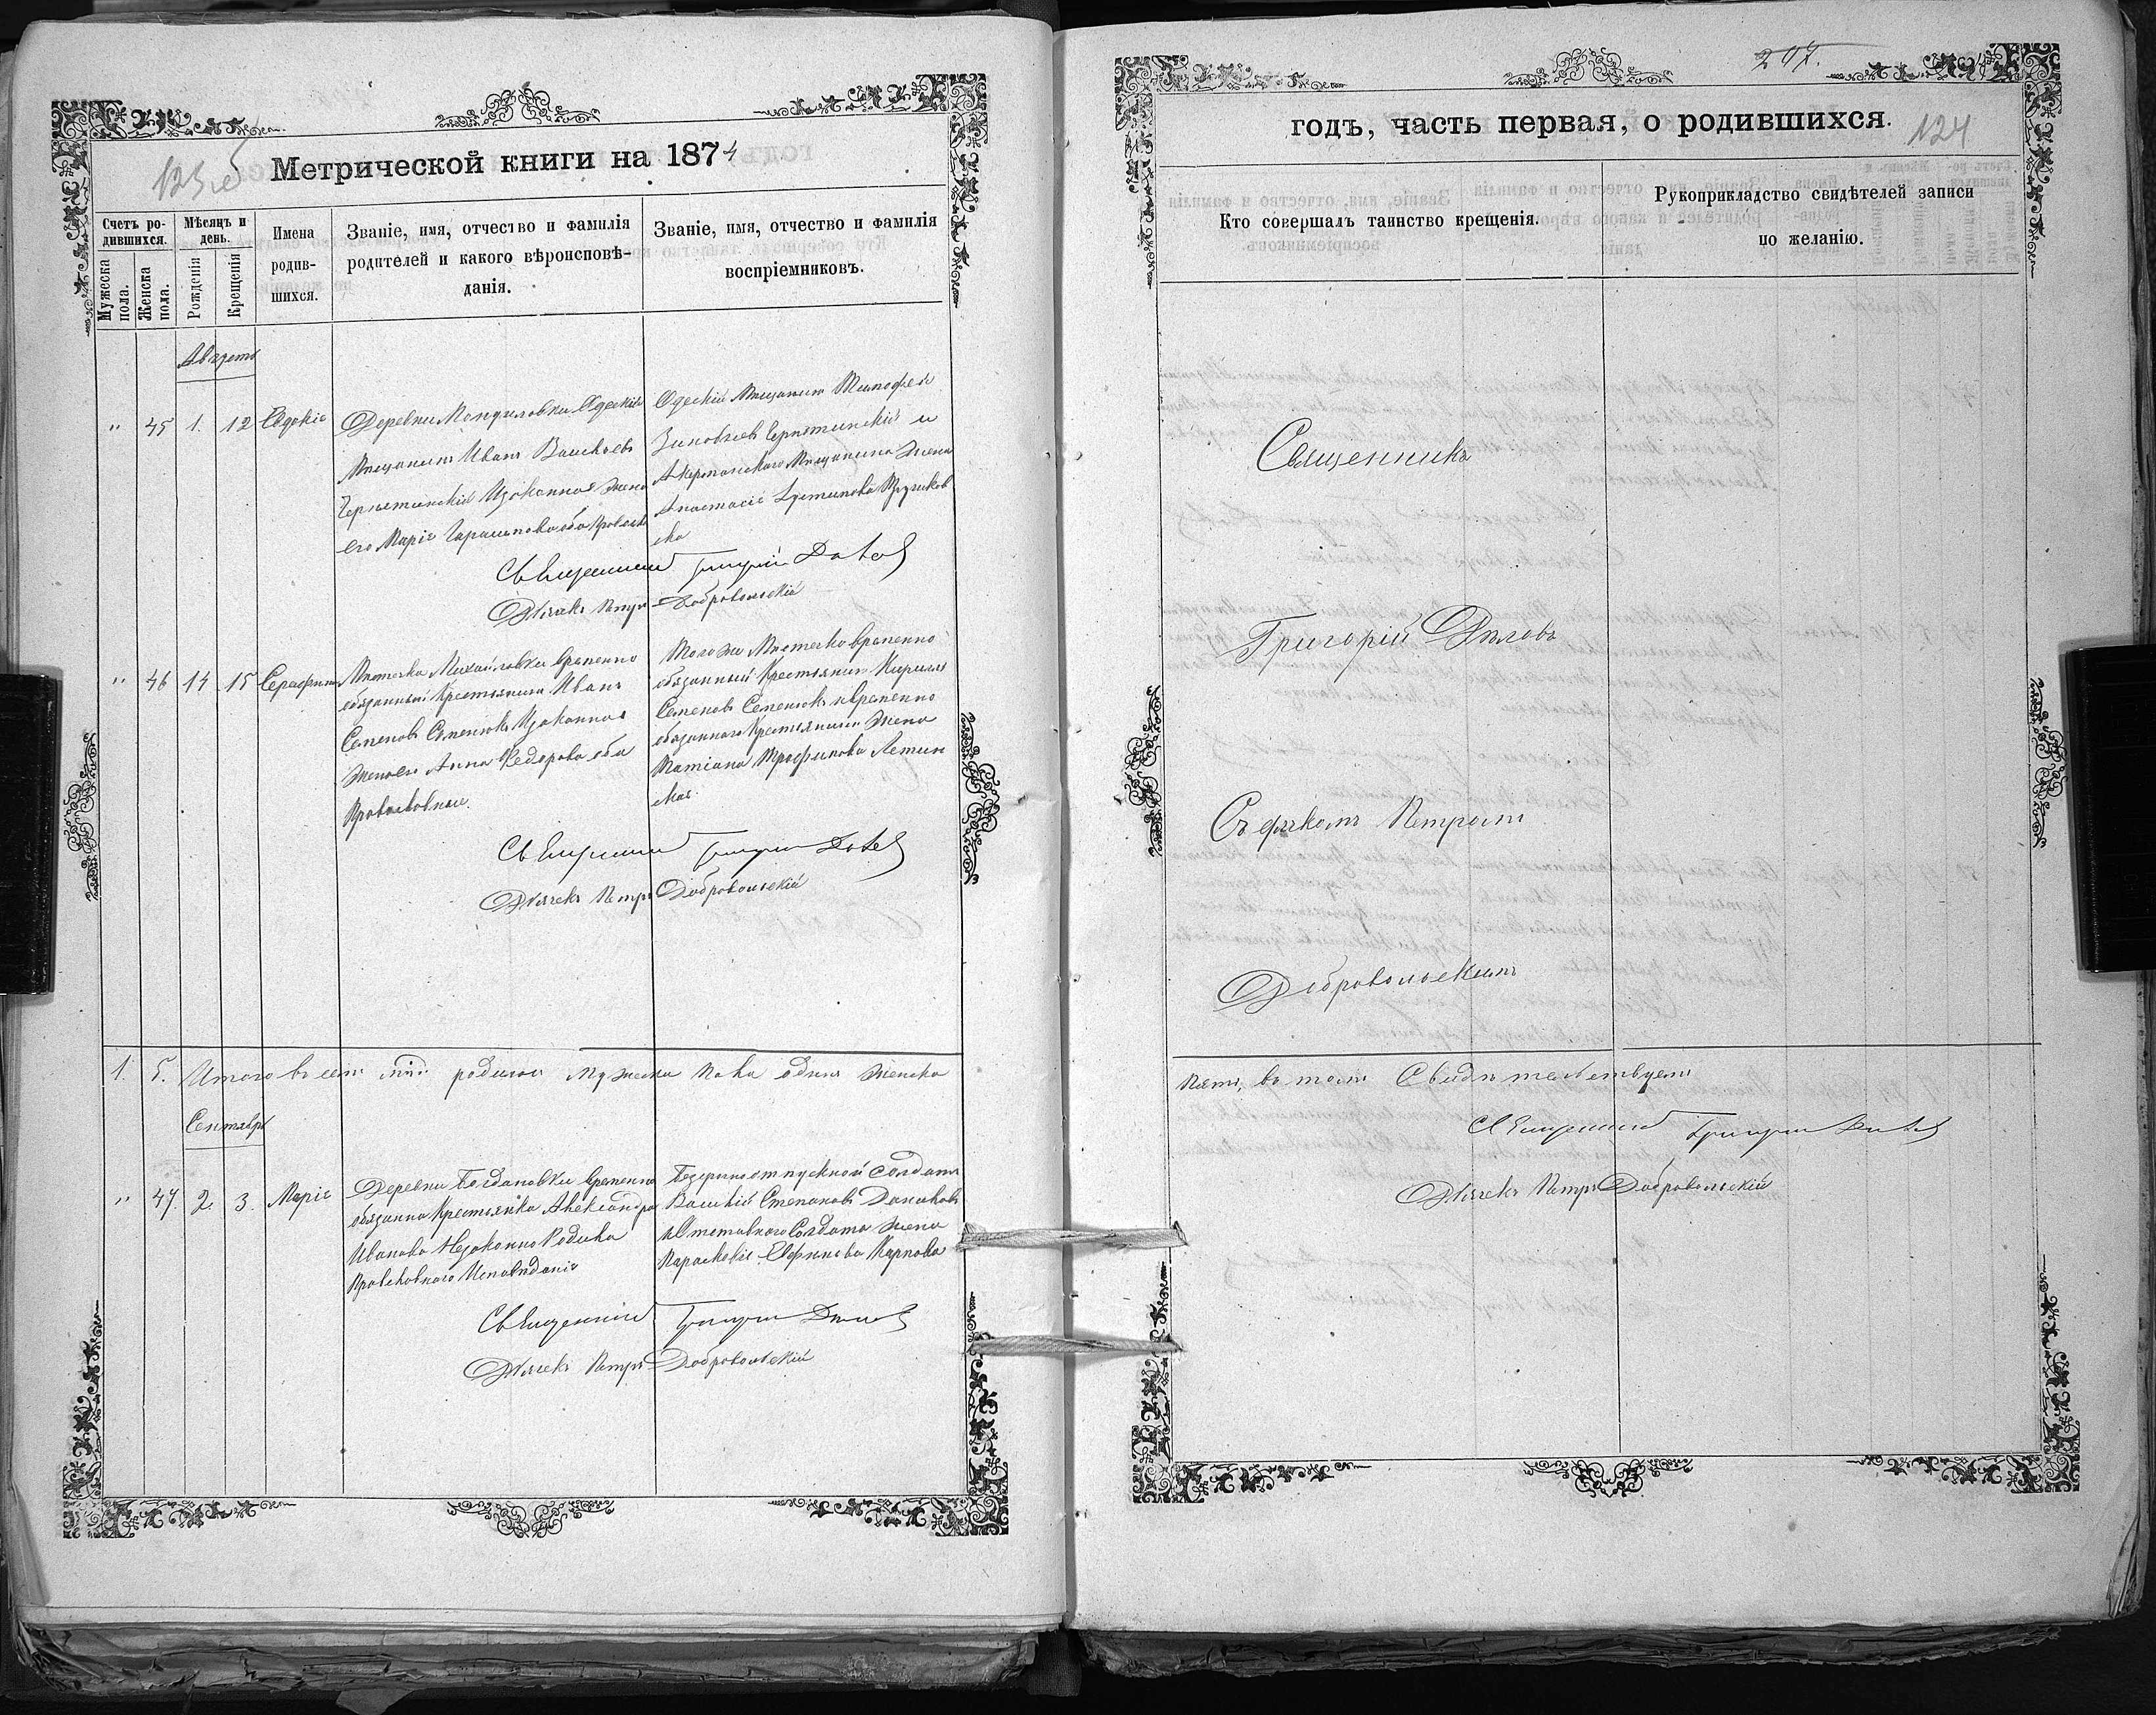 123 об
Метрической книги на 1874
Счетъ ро-
дившихся.
Мѣсяцъ и
день.
Имена
родив-
шихся.
Званіе, имя, отчество и фамилія
родителей и какого вѣроисповѣ-
данія.
Званіе, имя, отчество и фамилія
воспріемниковъ.
Мужеска
пола.
Женска
пола.
Рожденія
Крещенія
Августъ
" 45 1. 12 Евдокіе
Деревни Одескій
Мещанинъ Иванъ Васильевъ
Чернятинскій Изаконная Жена
его Маріе оба Православ
Одескій Мещанинъ Тимофей
Зиновіевъ Чернятинскій и
Акерманскаго Мещанина Жена
Анастасіе Устинова
ска
Священникъ Григорій Дѣловъ
Дьячекъ Петръ Добровольскій
" 46 14 15 Серафима
Местечка Михайловки Временно
обязанный Крестьянинъ Иванъ
Семеновъ Семенюкъ Изаконная
Жена его Анна Федорова оба
Православные.
Того же Местечка Временно
обязанный Крестьянинъ Кириллъ
Семеновъ Семенюкъ и Временно
обязаннаго Крестьянина Жена
Татіана Трофимова
Священникъ Григорій Дѣловъ
Дьячекъ Петръ Добровольскій
1. 5. Итого въ семъ м-цѣ родилось Мужеска Пола одинъ Женска
Сентябрь
" 47. 2. 3. Маріе
Деревни Богдановки Временно
обязанна Крестьянка Александра
Иванова Незаконно Родила
Православнаго Исповѣданіе
Безсрочноотпускной Солдатъ
Василій Степановъ
и Отставнаго Солдата Жена
Параскевіе Евфимова Карпова
Священникъ Григорій Дѣловъ
Дьячекъ Петръ Добровольскій
207.
годъ, часть первая, о родившихся.
124
Кто совершалъ таинство крещенія.
Рукоприкладство свидѣтелей записи
по желанію.
Священникъ
Григорій Дѣловъ
Съ дьячкомъ Петромъ
Добровольскимъ
Пять, въ томъ Свидѣтельствуемъ
Священникъ Григорій Дѣловъ
Дьячекъ Петръ Добровольскій